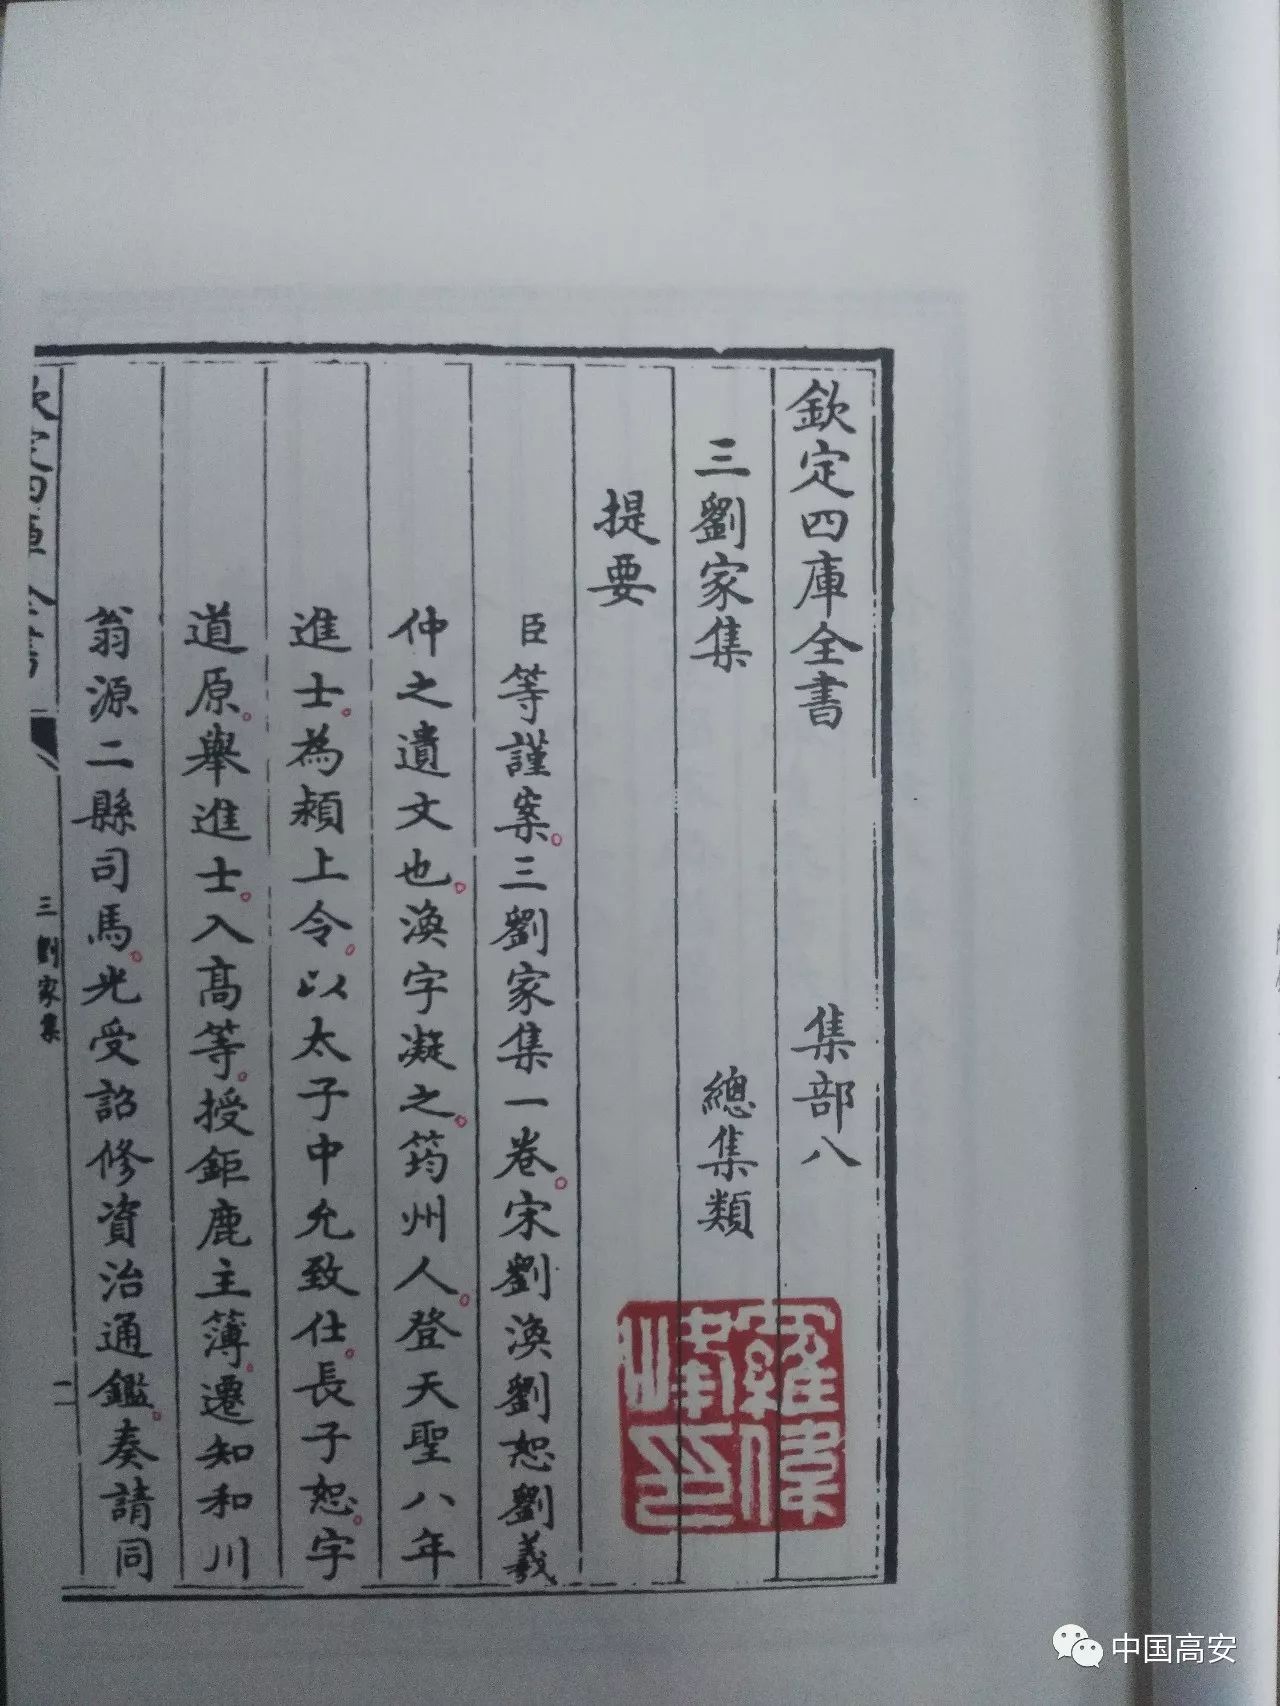 欽定四庫全書 集部八
三劉家集 總集類
提要
臣等謹案三劉家集一卷宋劉渙劉恕劉羲
仲之遺文也渙字凝之筠州人登天聖八年
進士為潁上令以太子中允致仕長子恕字
道原舉進士入高等授鉅鹿主簿遷知和川
翁源二縣司馬光受詔修資治通鑑奏請同
欽定四庫全書 三劉家集 二
羅偉峰印
中国高安